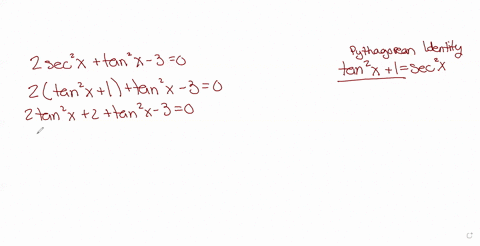 2sec²x + tan²x - 3 = 0
2(tan²x + 1) + tan²x - 3 = 0
2tan²x + 2 + tan²x - 3 = 0
Pythagorean Identity
tan²x + 1 = sec²x